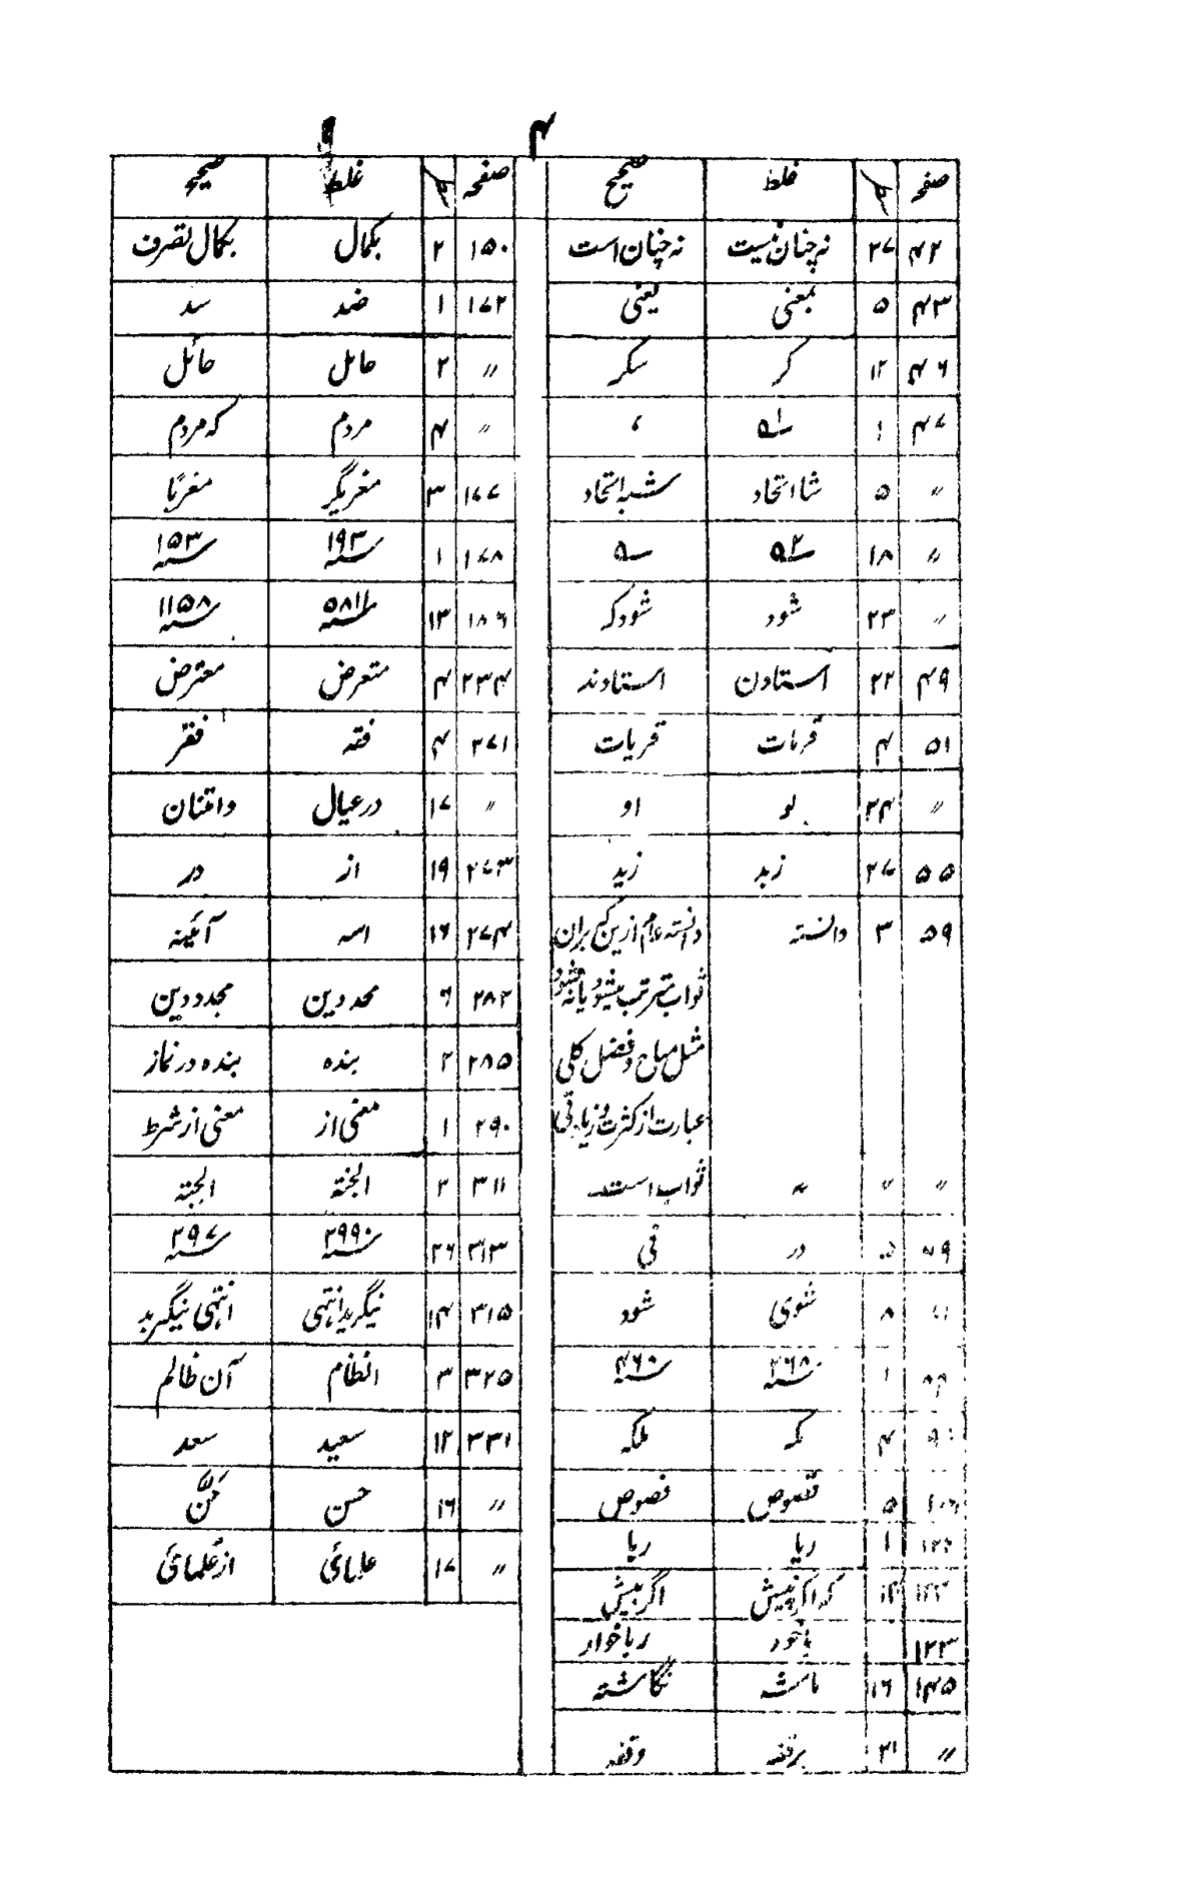 ۴
صفحہ سطر غلط صحیح
۴۲ ۲۷ نہ چنان نیست نہ چنان است
۴۳ ۵ بمعنی یعنی
۴۶ ۱۲ کر سکر
۴۷ ۱ ۵۱ ،
〃 ۵ شا اتحاد شبہ اتحاد
〃 ۱۸ ۵۲ ۵
〃 ۲۳ شود شود کہ
۴۹ ۲۲ استادن استادند
۵۱ ۴ قربات قریات
〃 ۲۴ لو او
۵۵ ۲۷ زبد زید
۵۹ ۳ دانستہ دانستہ عام ازین کہ بران
ثواب مترتب میشود یا نمیشود
مثل مباح و فضل کلی
عبارت از کثرت و زیادتی
〃 〃 〃 ثواب است
۷۹ ۵ در فی
۸ شوی شود
۱ ۴۶۸ سنہ ۴۶۰ سنہ
۴ کمہ ملکہ
۵ قصوص فصوص
۱ ریا ربا
۱۴ کہ اگر بیش اگر بیش
۱۲۳ باخود رباخوار
۱۴۵ ۱۶ ماشتہ نگاشتہ
〃 ۲۱ برقفہ وقفہ
صفحہ سطر غلط صحیح
۱۵۰ ۲ بکمال بکمال تصرف
۱۷۲ ۱ ضد سد
〃 ۲ حامل حائل
〃 ۴ مردم کہ مردم
۱۷۷ ۳ مغریگر مغربًا
۱۷۸ ۱ ۱۹۳ سنہ ۱۵۳ سنہ
۱۸۶ ۱۳ ۵۸۱۱ سنہ ۱۱۵۸ سنہ
۲۳۴ ۴ متعرض معترض
۲۷۱ ۴ فقہ فقر
〃 ۱۷ در عیال و امتنان
۲۷۳ ۱۹ از در
۲۷۴ ۱۶ اسہ آئینہ
۲۸۲ ۶ محددین مجدد دین
۲۸۵ ۲ بندہ بندہ در نماز
۲۹۰ ۱ معنی از معنی از شرط
۳۱۱ ۲ الجنۃ الجبتہ
۳۱۳ ۲۶ ۲۹۹۰ سنہ ۲۹۷ سنہ
۳۱۵ ۱۴ نیگرید انتہی انتہی نیگرید
۳۲۵ ۳ انظام آن ظالم
۳۳۱ ۱۲ سعید سعد
〃 ۱۶ حسن
〃 ۱۷ علمائ از علمائ